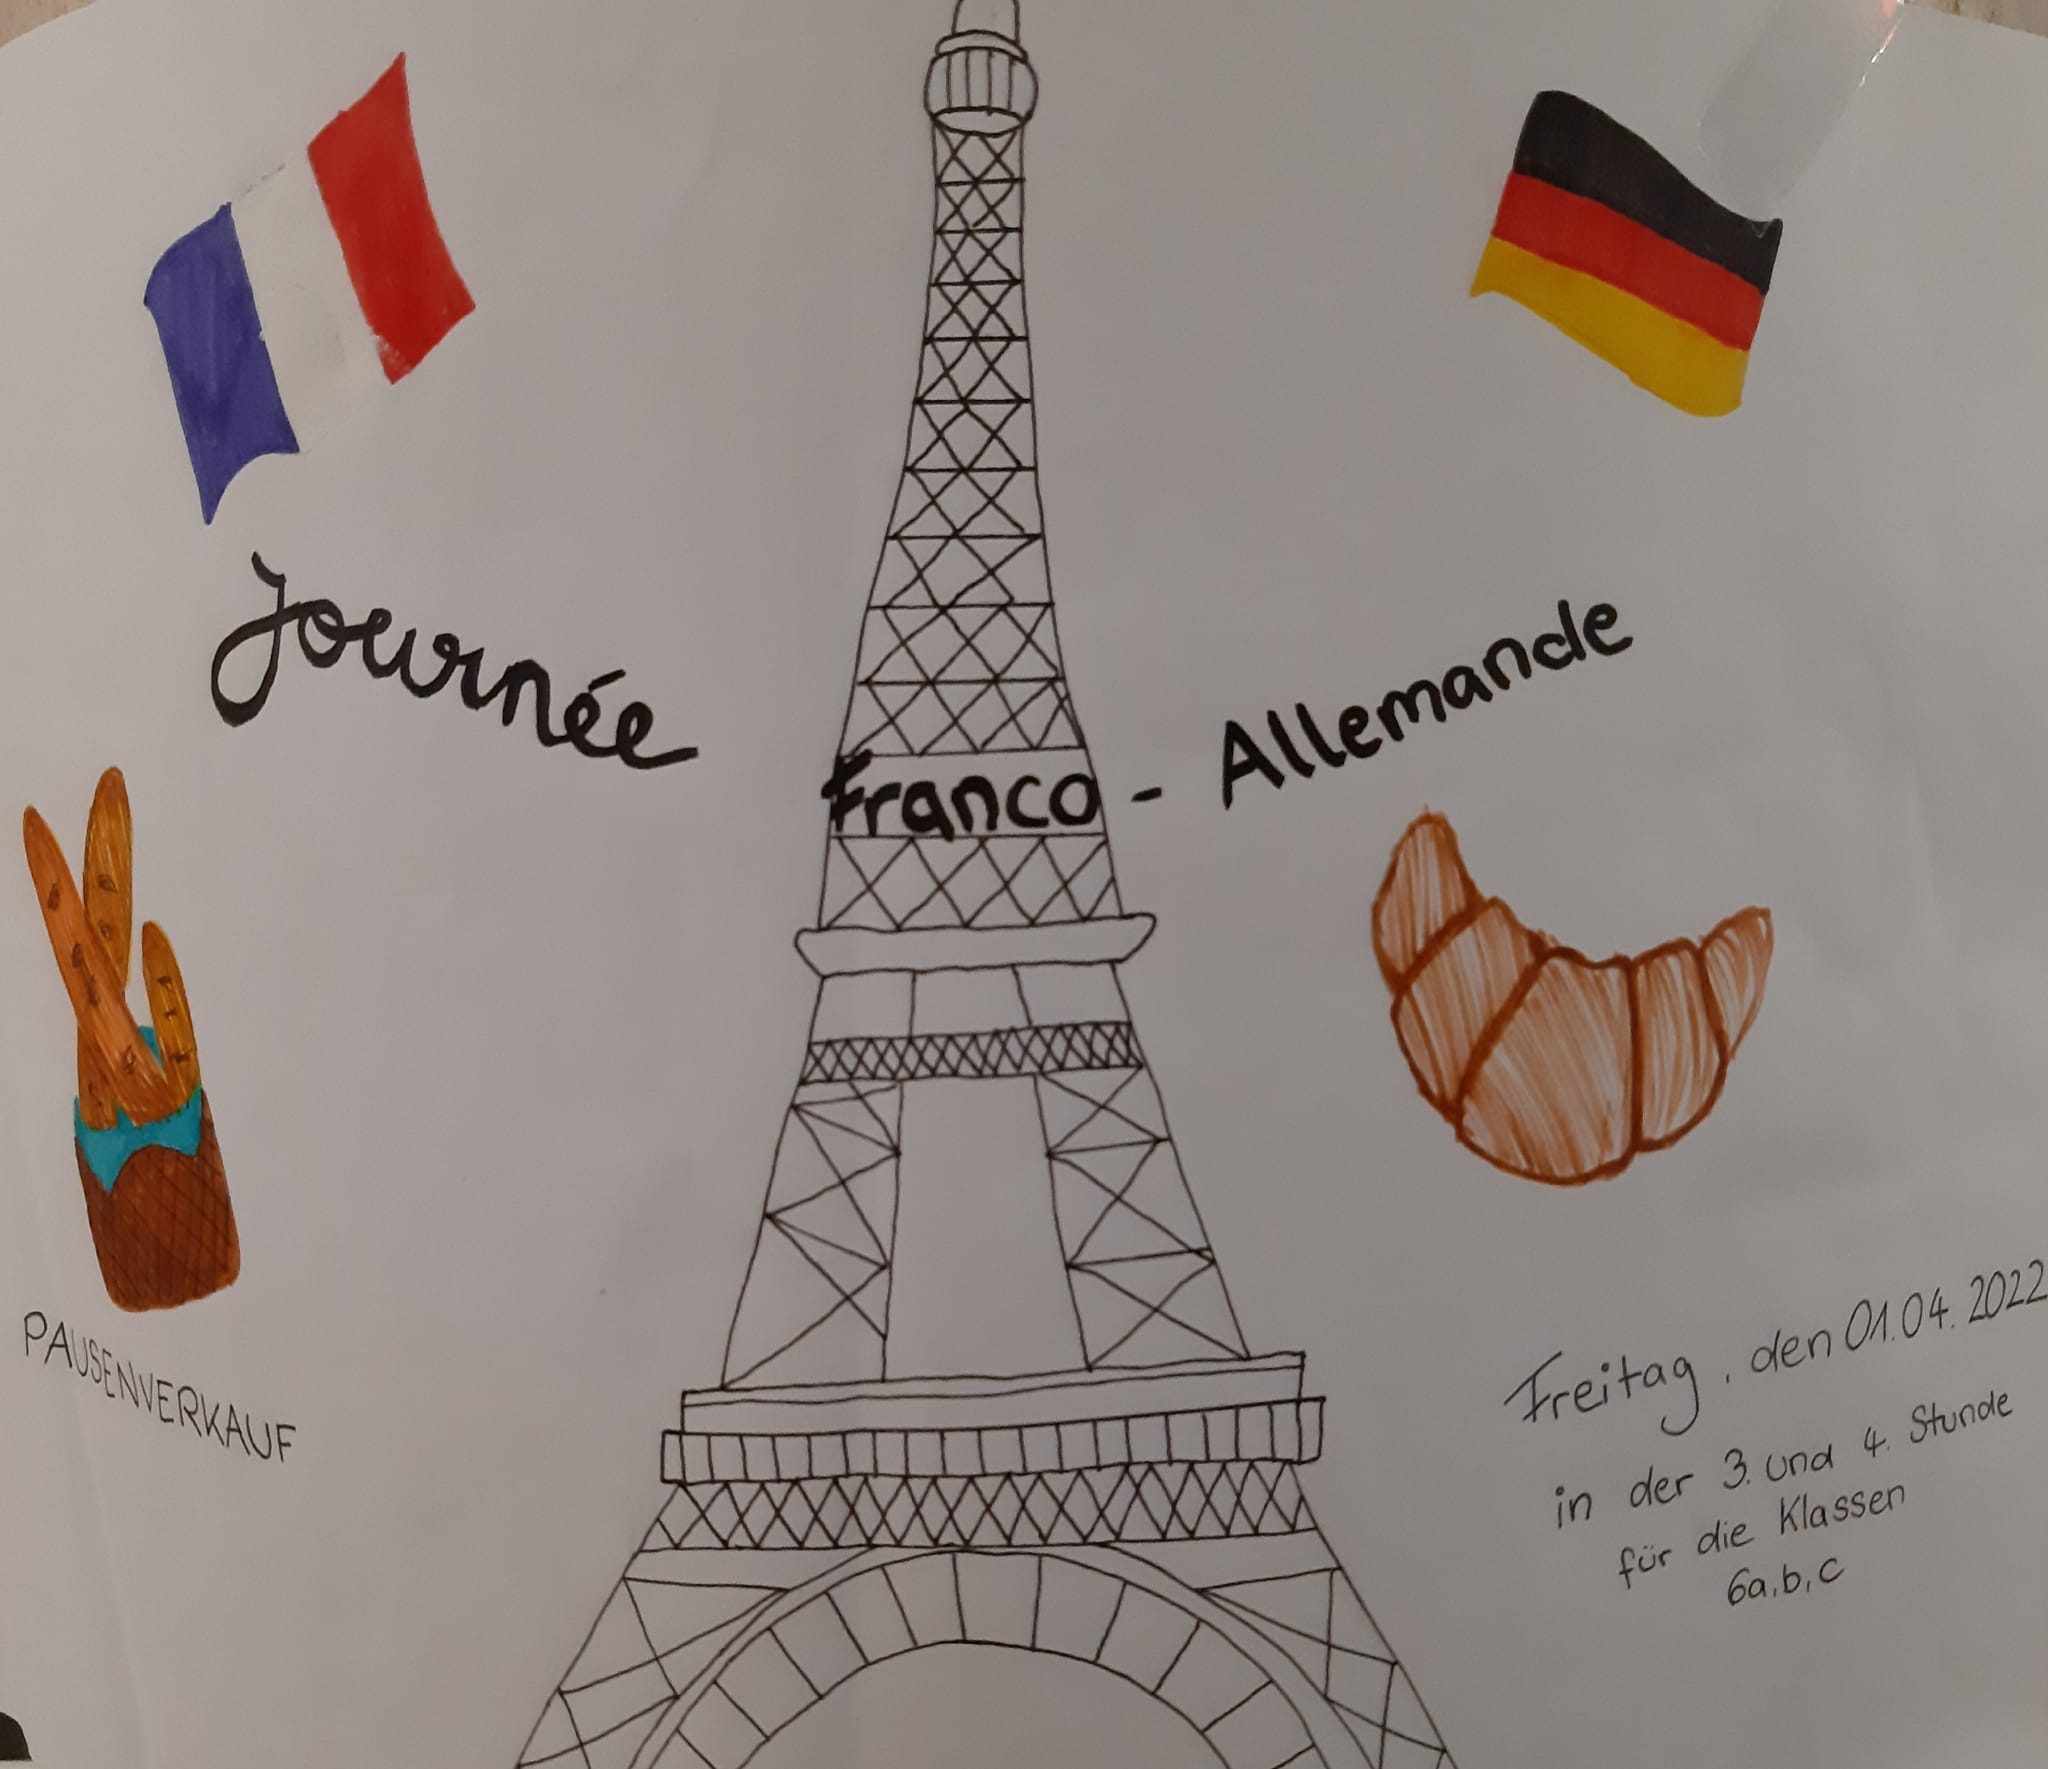 Journée
Franco - Allemande
PAUSENVERKAUF
Freitag, den 01.04.2022
in der 3. und 4. Stunde
für die Klassen
6a, b, c